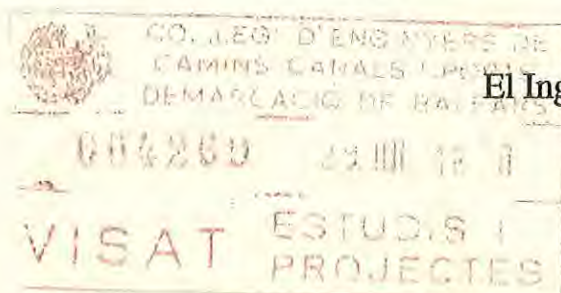 COL.LEGI D'ENGINYERS DE
CAMINS CANALS I PORTS
DEMARCACIO DE BALEARS
El Ing
VISAT ESTUDIS I
PROJECTES